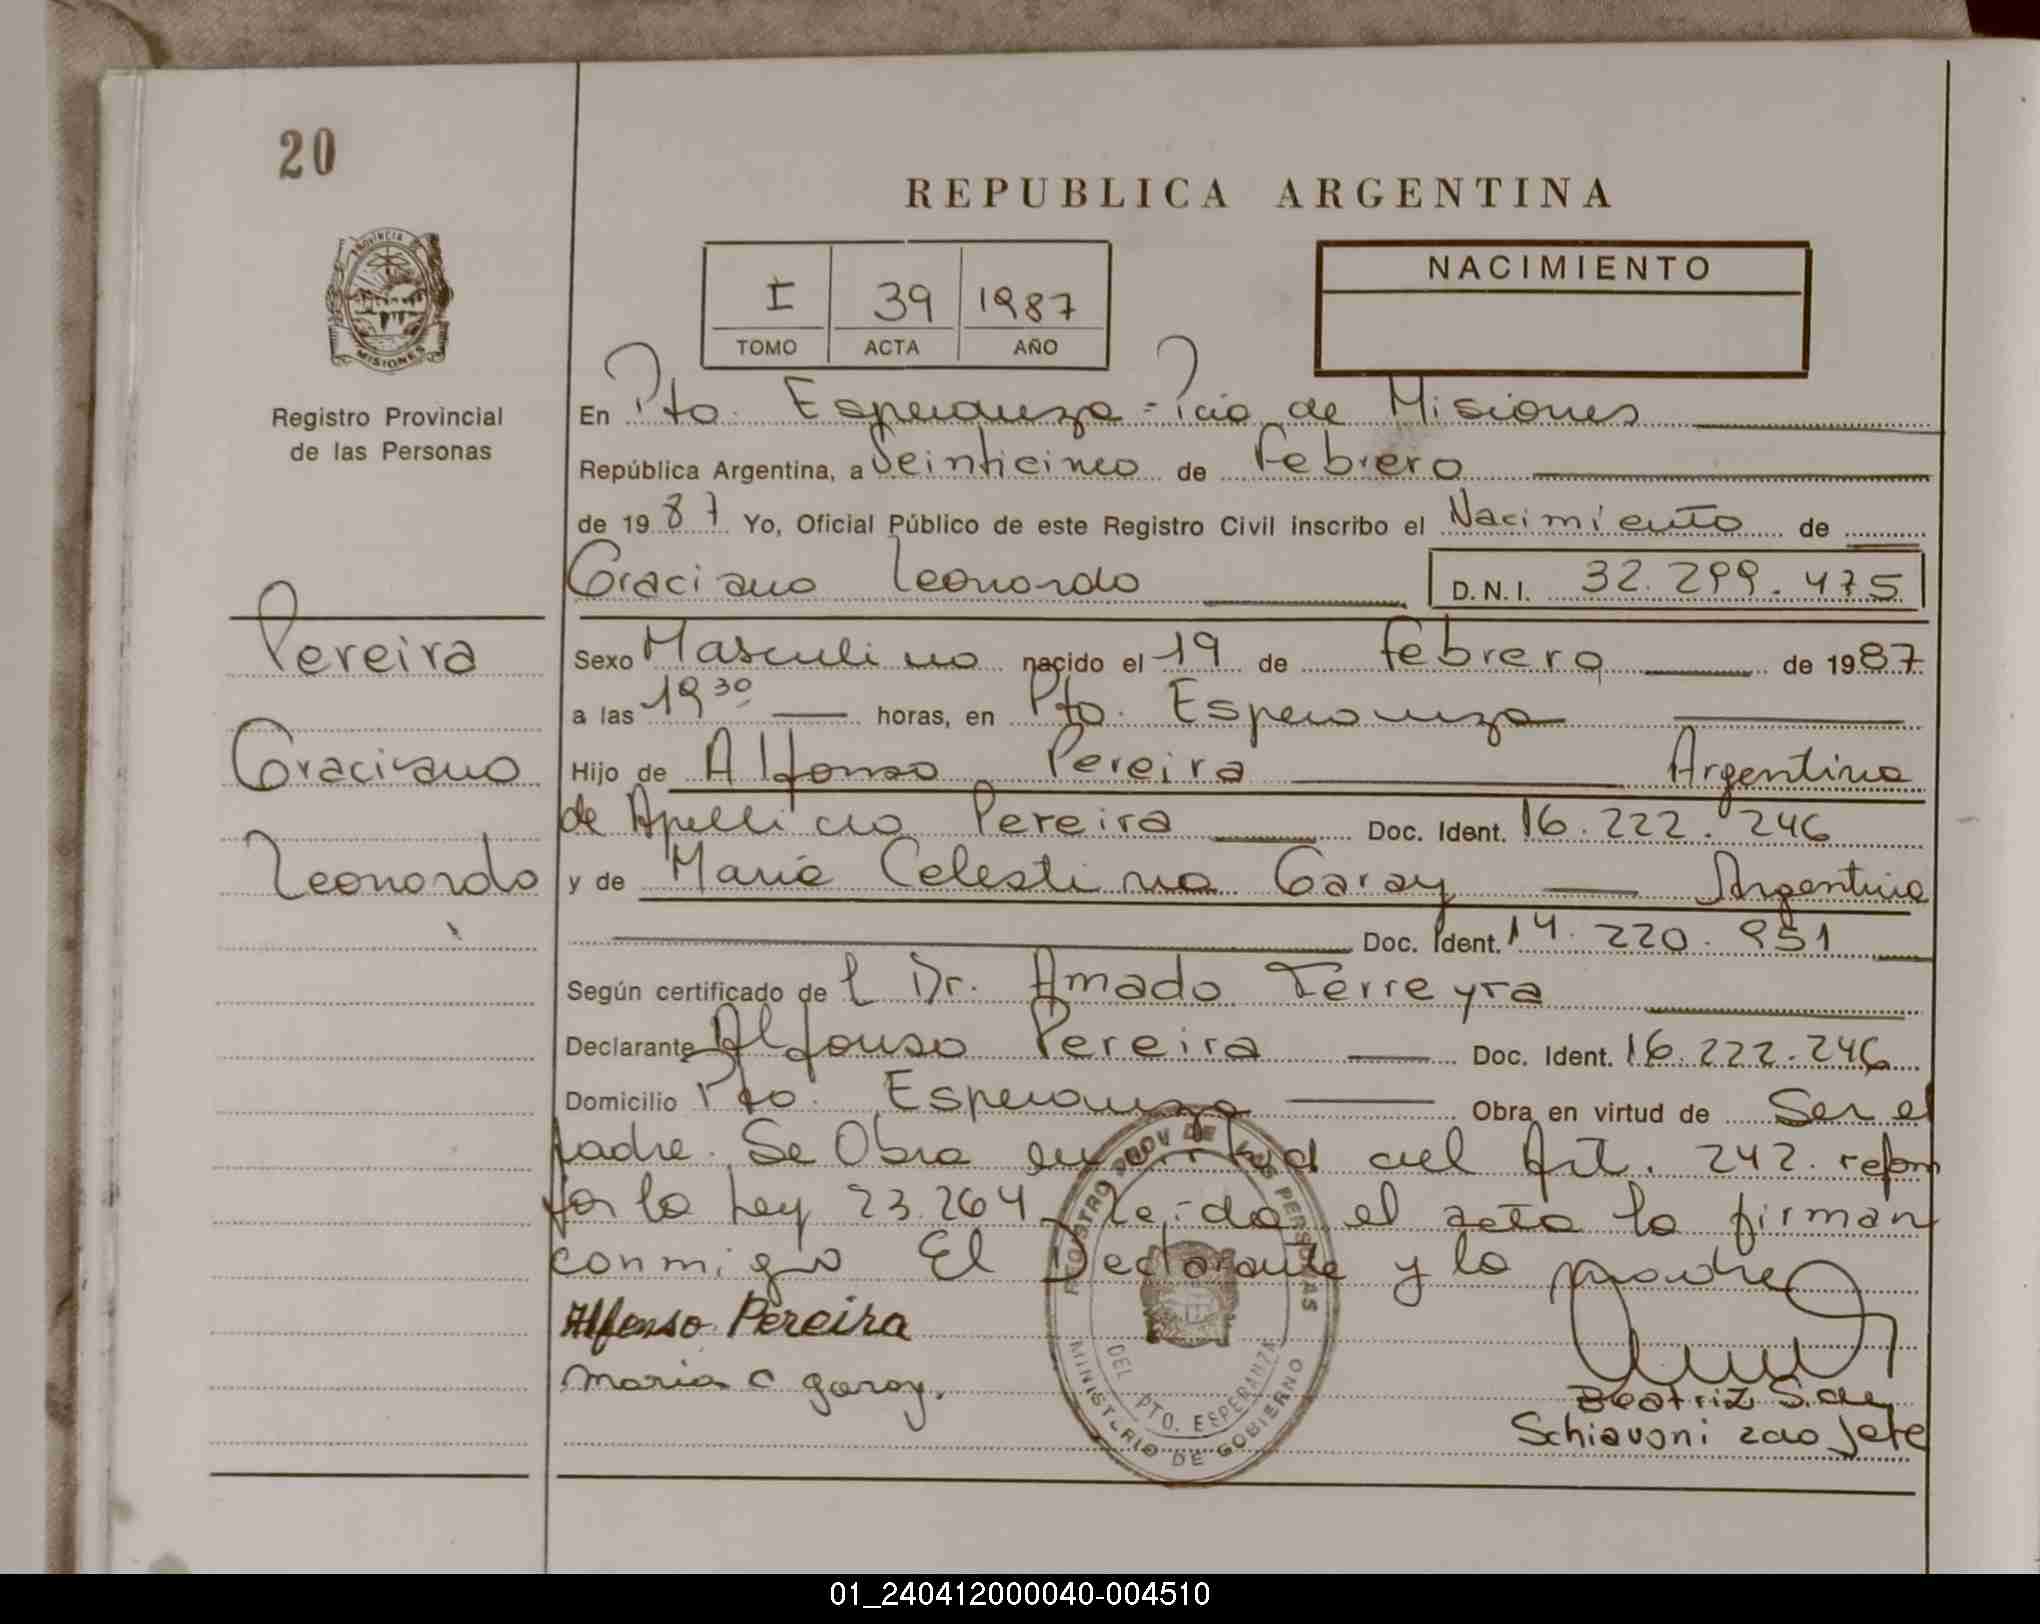 20
REPUBLICA ARGENTINA
PROVINCIA DE
MISIONES
I 39 1987
TOMO ACTA AÑO
NACIMIENTO
Registro Provincial
de las Personas
En Pto. Esperanza - Pcia de Misiones
República Argentina, a Veinticinco de Febrero
de 1987 Yo, Oficial Público de este Registro Civil inscribo el Nacimiento de
Graciano Leonardo D.N.I. 32.299.475
Pereira
Graciano
Leonardo
Sexo Masculino nacido el 19 de febrero de 1987
a las 19 30 horas, en Pto. Esperanza
Hijo de Alfonso Pereira Argentino
de Apellido Pereira Doc. Ident. 16.222.246
y de María Celestina Garay Argentina
Doc. Ident. 14.220.951
Según certificado de l Dr. Amado Ferreyra
Declarante Alfonso Pereira Doc. Ident. 16.222.246
Domicilio Pto. Esperanza Obra en virtud de Ser el
padre. Se Obra en virtud del Art. 242. reform
por la Ley 23.264 Leída el acta la firman
conmigo El Declarante y la madre
Alfonso Pereira
maria c garay.
Beatriz S. de
Schiavoni 2do Jefe
REGISTRO PROV DE LAS PERSONAS
DEL PTO. ESPERANZA
MINISTERIO DE GOBIERNO
01_240412000040-004510